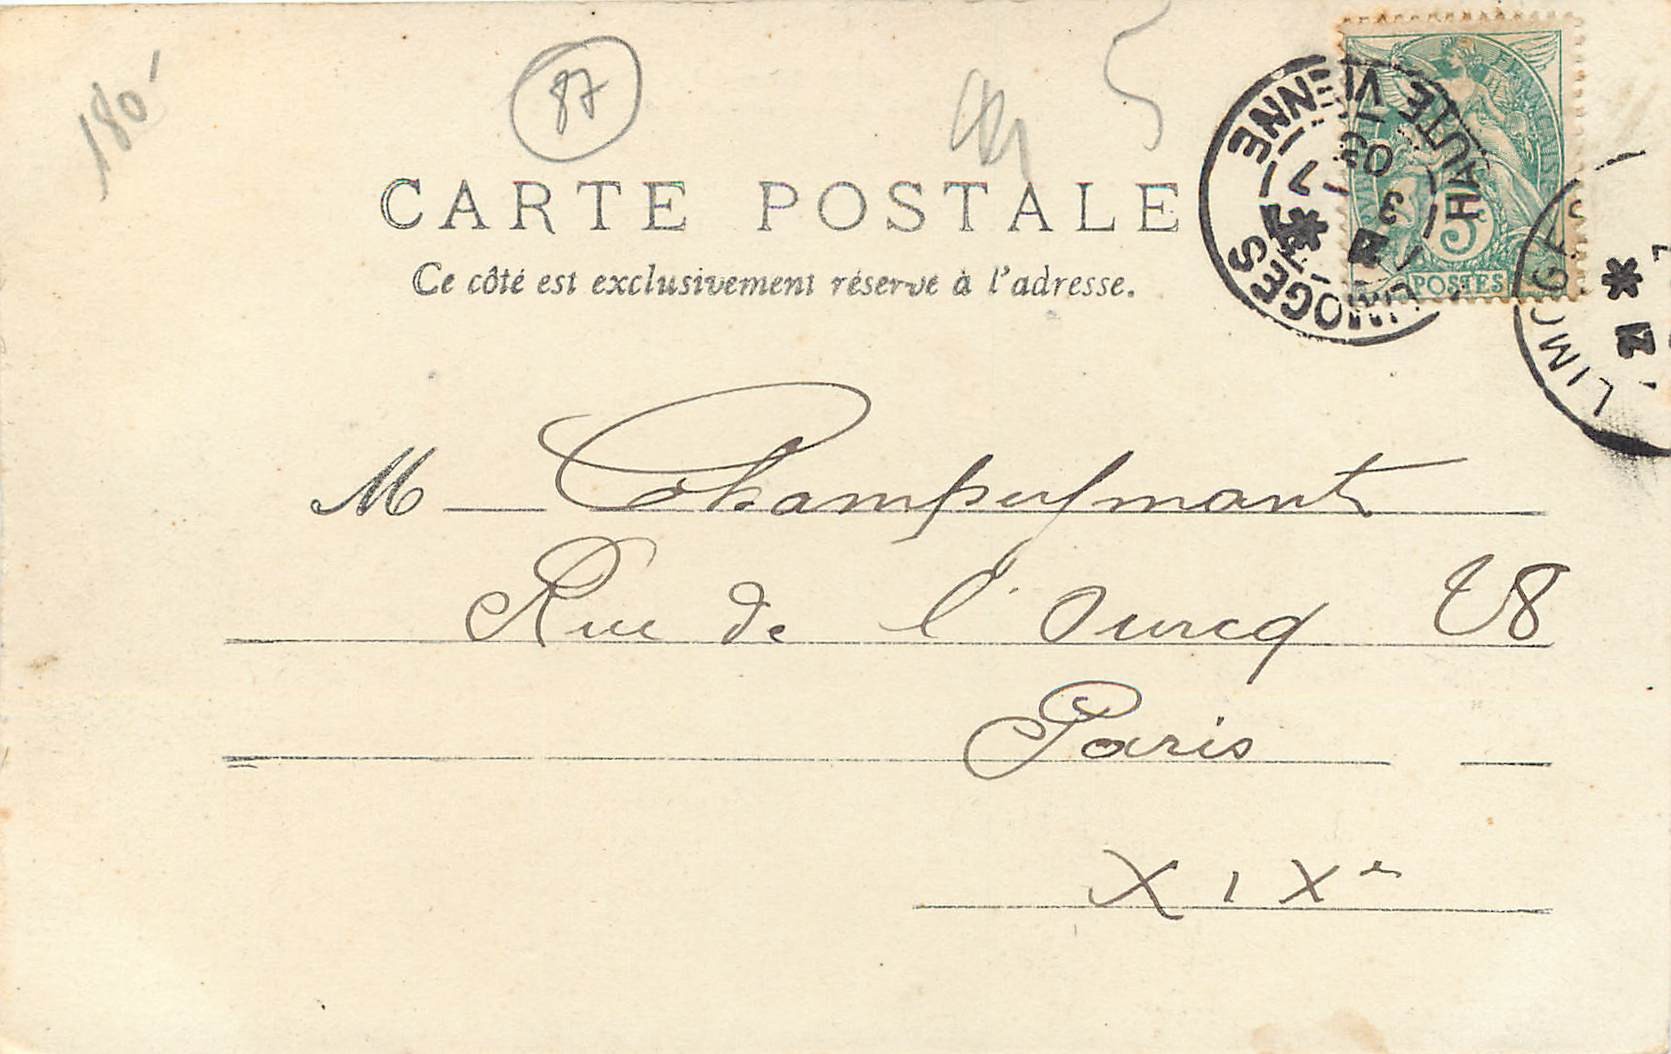 180-
87
5
CARTE POSTALE
Ce côté est exclusivement réservé à l'adresse.
LIMOGES HAUTE VIENNE
7 * 12
3
03
5c
POSTES
LIMOGES
7 * 12
M Champeymant
Rue de l'Ourcq 28
Paris
XIXe